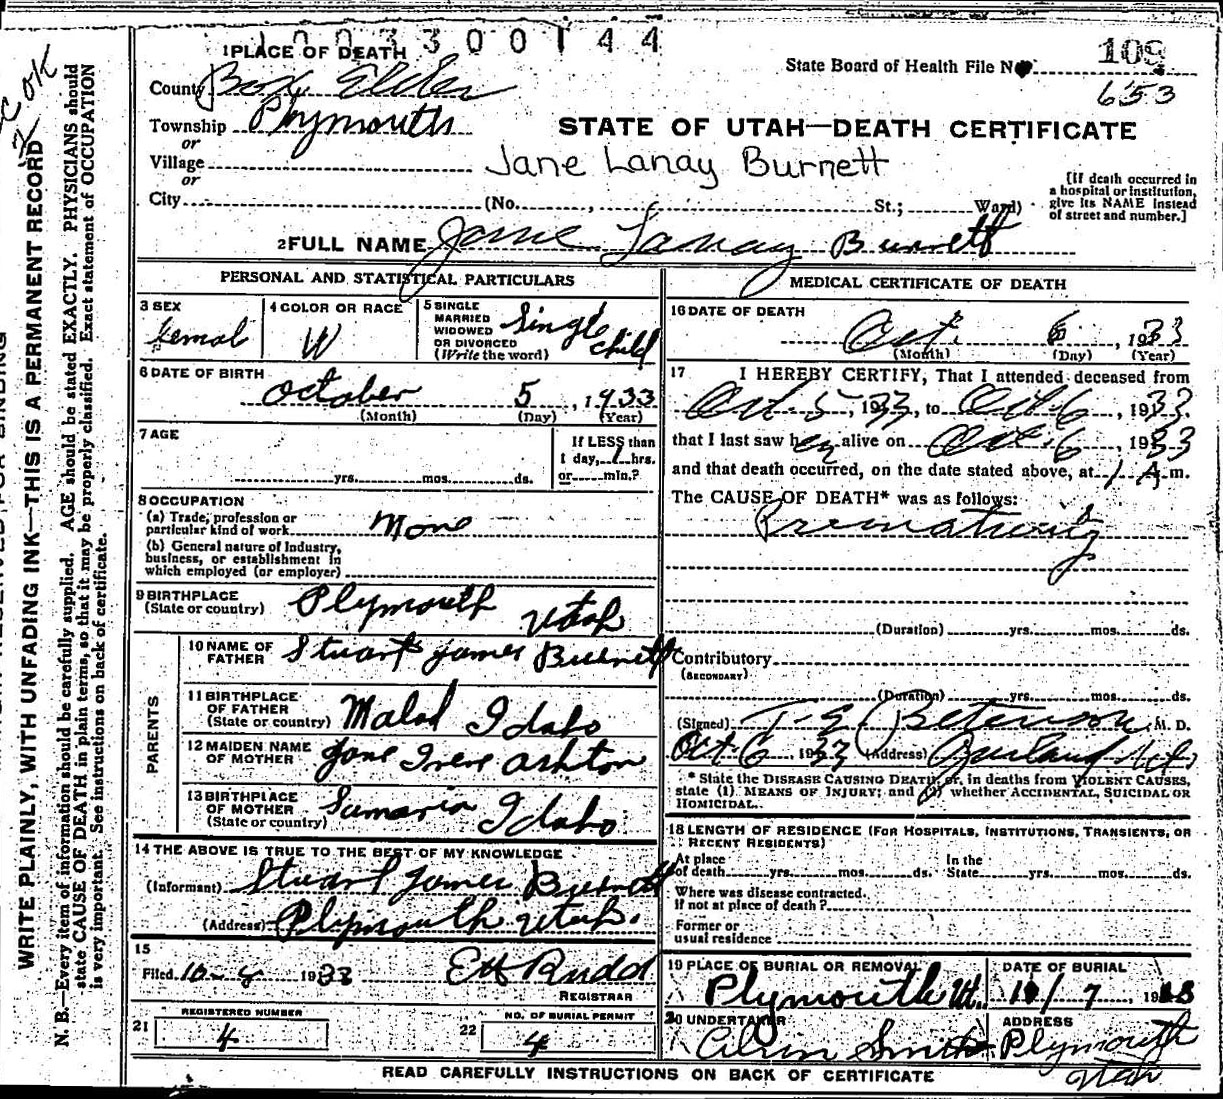 1 0 0 3 3 0 0 1 4 4
1 PLACE OF DEATH
County Box Elder
Township Plymouth
or
Village
or
City (No. , St.; Ward)
State Board of Health File No. 109
653
STATE OF UTAH—DEATH CERTIFICATE
Jane Lanay Burnett
[If death occurred in
a hospital or institution,
give its NAME instead
of street and number.]
2 FULL NAME Jane Lanay Burnett
PERSONAL AND STATISTICAL PARTICULARS
3 SEX
Femal
4 COLOR OR RACE
W
5 SINGLE
MARRIED
WIDOWED
OR DIVORCED
(Write the word)
Single
child
6 DATE OF BIRTH
October 5, 1933
(Month) (Day) (Year)
7 AGE
yrs. mos. ds.
If LESS than
1 day, 1 hrs.
or min.?
8 OCCUPATION
(a) Trade, profession or
particular kind of work None
(b) General nature of Industry,
business, or establishment in
which employed (or employer)
9 BIRTHPLACE
(State or country) Plymouth Utah
PARENTS
10 NAME OF
FATHER Stuart James Burnett
11 BIRTHPLACE
OF FATHER
(State or country) Malad Idaho
12 MAIDEN NAME
OF MOTHER Jane Irene Ashton
13 BIRTHPLACE
OF MOTHER
(State or country) Samaria Idaho
14 THE ABOVE IS TRUE TO THE BEST OF MY KNOWLEDGE
(Informant) Stuart James Burnett
(Address) Plymouth Utah.
15
Filed 10-8 1933 Rudd
REGISTRAR
21
REGISTERED NUMBER
4
22
NO. OF BURIAL PERMIT
4
MEDICAL CERTIFICATE OF DEATH
16 DATE OF DEATH
Oct. 6, 1933
(Month) (Day) (Year)
17 I HEREBY CERTIFY, That I attended deceased from
Oct. 5, 1933, to Oct. 6, 1933.
that I last saw her alive on Oct. 6, 1933
and that death occurred, on the date stated above, at 1 A m.
The CAUSE OF DEATH* was as follows:
Prematurity
(Duration) yrs. mos. ds.
Contributory
(SECONDARY)
(Duration) yrs. mos. ds.
(Signed) M. D.
Oct. 6 1933 (Address) Garland
* State the DISEASE CAUSING DEATH, or, in deaths from VIOLENT CAUSES,
state (1) MEANS OF INJURY; and (2) whether ACCIDENTAL, SUICIDAL OR
HOMICIDAL.
18 LENGTH OF RESIDENCE (FOR HOSPITALS, INSTITUTIONS, TRANSIENTS, OR
RECENT RESIDENTS)
At place In the
of death yrs. mos. ds. State yrs. mos. ds.
Where was disease contracted.
if not at place of death?
Former or
usual residence
19 PLACE OF BURIAL OR REMOVAL
Plymouth Ut.
DATE OF BURIAL
10/7, 1933
20 UNDERTAKER
Alvin Smith
ADDRESS
Plymouth
Utah
READ CAREFULLY INSTRUCTIONS ON BACK OF CERTIFICATE
OK
WRITE PLAINLY, WITH UNFADING INK—THIS IS A PERMANENT RECORD
N. B.—Every item of information should be carefully supplied. AGE should be stated EXACTLY. PHYSICIANS should
state CAUSE OF DEATH in plain terms, so that it may be properly classified. Exact statement of OCCUPATION
is very important. See instructions on back of certificate.